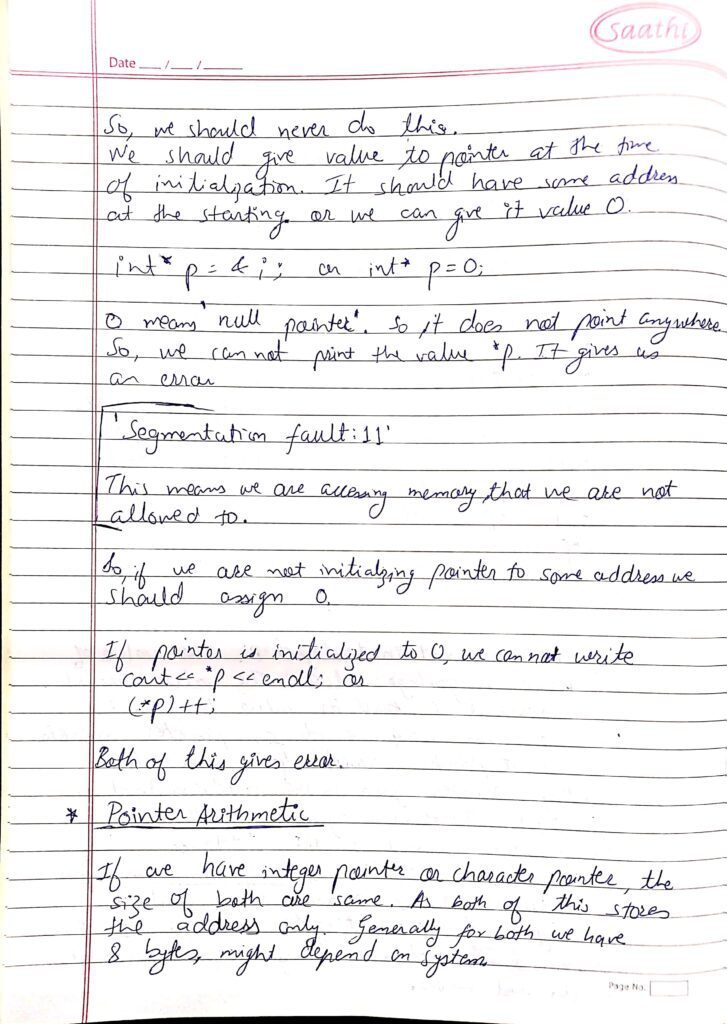 saathi
Date __/__/____
So, we should never do this.
We should give value to pointer at the time
of initialization. It should have some address
at the starting or we can give it value 0.
int* p = & i; or int* p=0;
0 means 'null pointer'. So it does not point anywhere
So, we can not print the value *p. It gives us
an error
'Segmentation fault:11'
This means we are accessing memory that we are not
allowed to.
So, if we are not initializing pointer to some address we
should assign 0.
If pointer is initialized to 0, we can not write
cout<< *p << endl; or
(*p)++;
Both of this gives error.
* Pointer Arithmetic
If we have integer pointer or character pointer, the
size of both are same. As both of this stores
the address only. Generally for both we have
8 bytes, might depend on system
Page No.